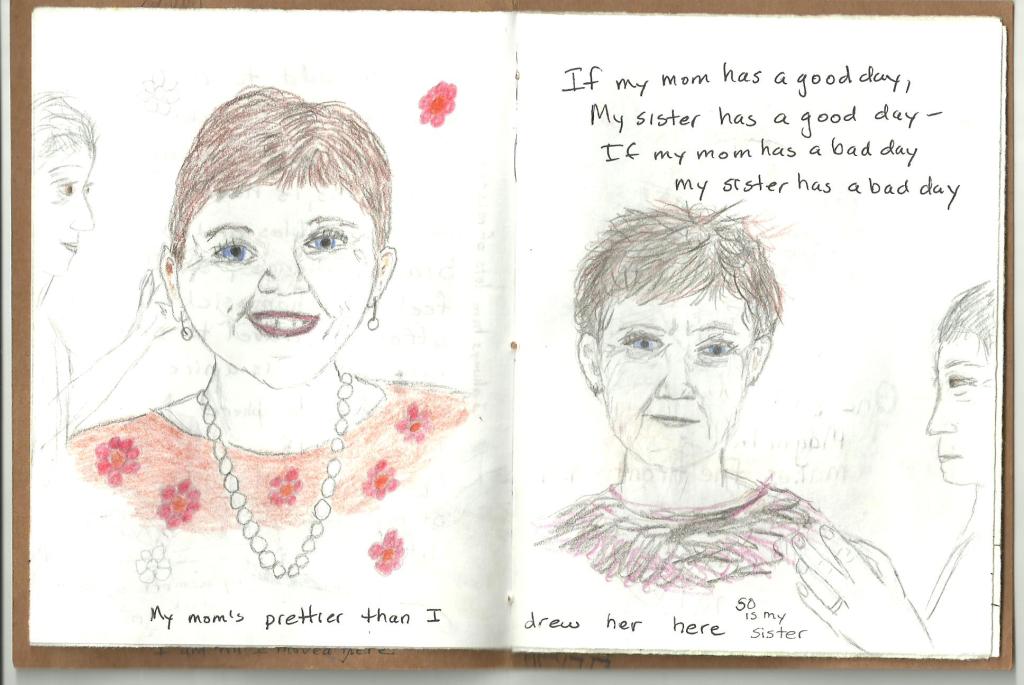 If my mom has a good day,
My sister has a good day –
If my mom has a bad day
my sister has a bad day
My mom's prettier than I drew her here so is my sister